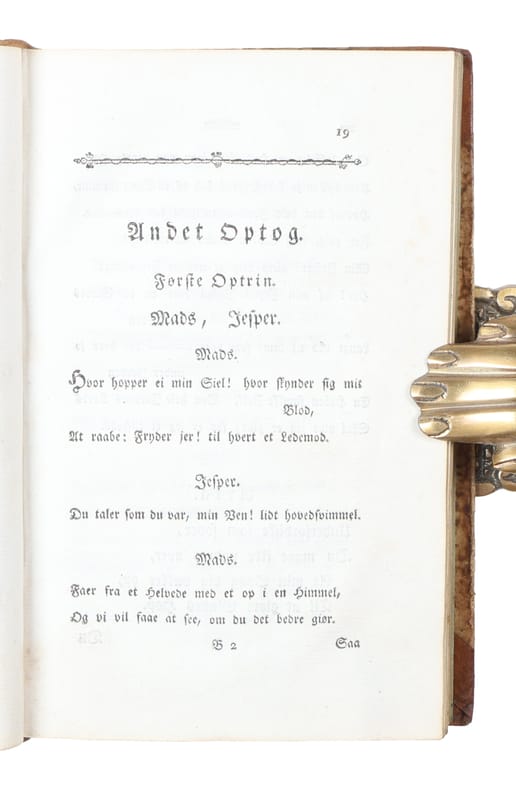 19
Andet Optog.
Første Optrin.
Mads, Jesper.
Mads.
Hvor hopper ei min Siel! hvor skynder sig mit
Blod,
At raabe: Fryder jer! til hvert et Ledemod.
Jesper.
Du taler som du var, min Ven! lidt hovedsvimmel.
Mads.
Faer fra et Helvede med et op i en Himmel,
Og vi vil faae at see, om du det bedre giør.
B 2 Saa